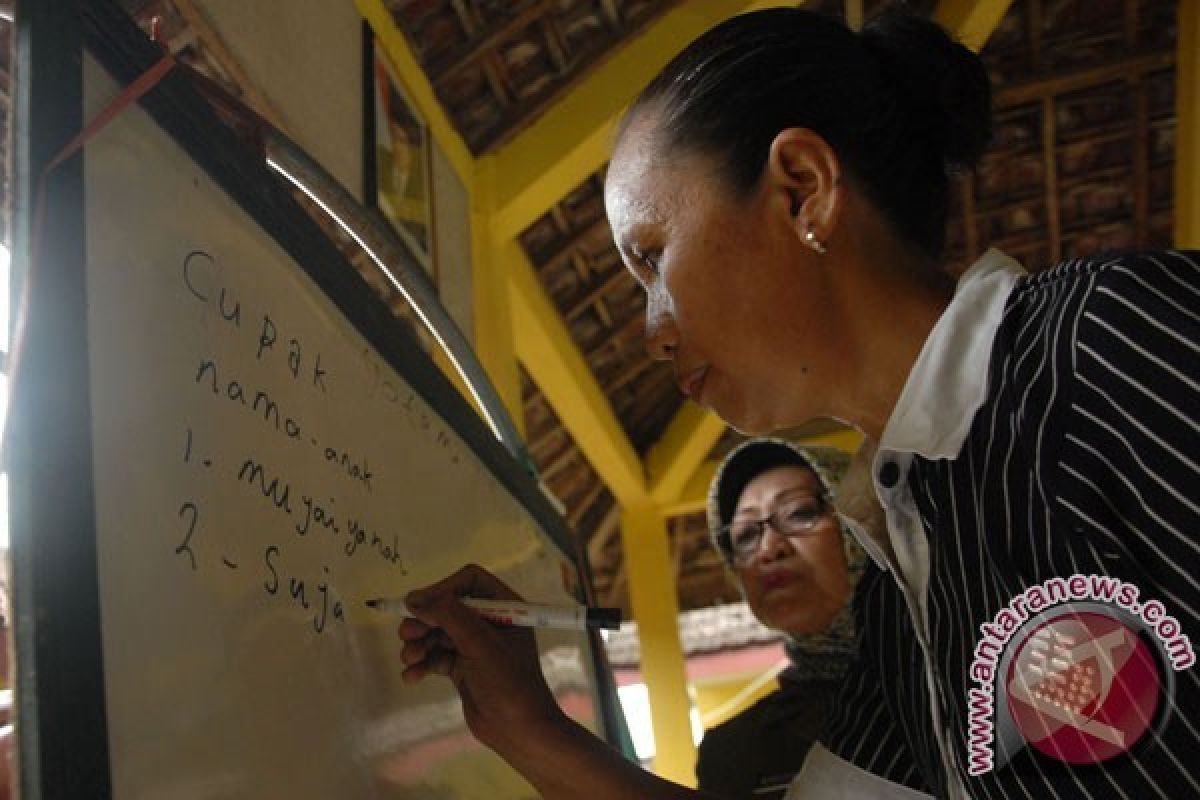 Cupak
nama-anak
1. mugaiyanah
2 - Suja
www.antaranews.com